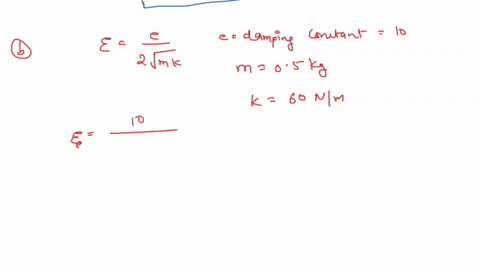 (b) ξ = c / 2√mk c = damping constant = 10
m = 0.5 kg
k = 60 N/m
ξ = 10 /